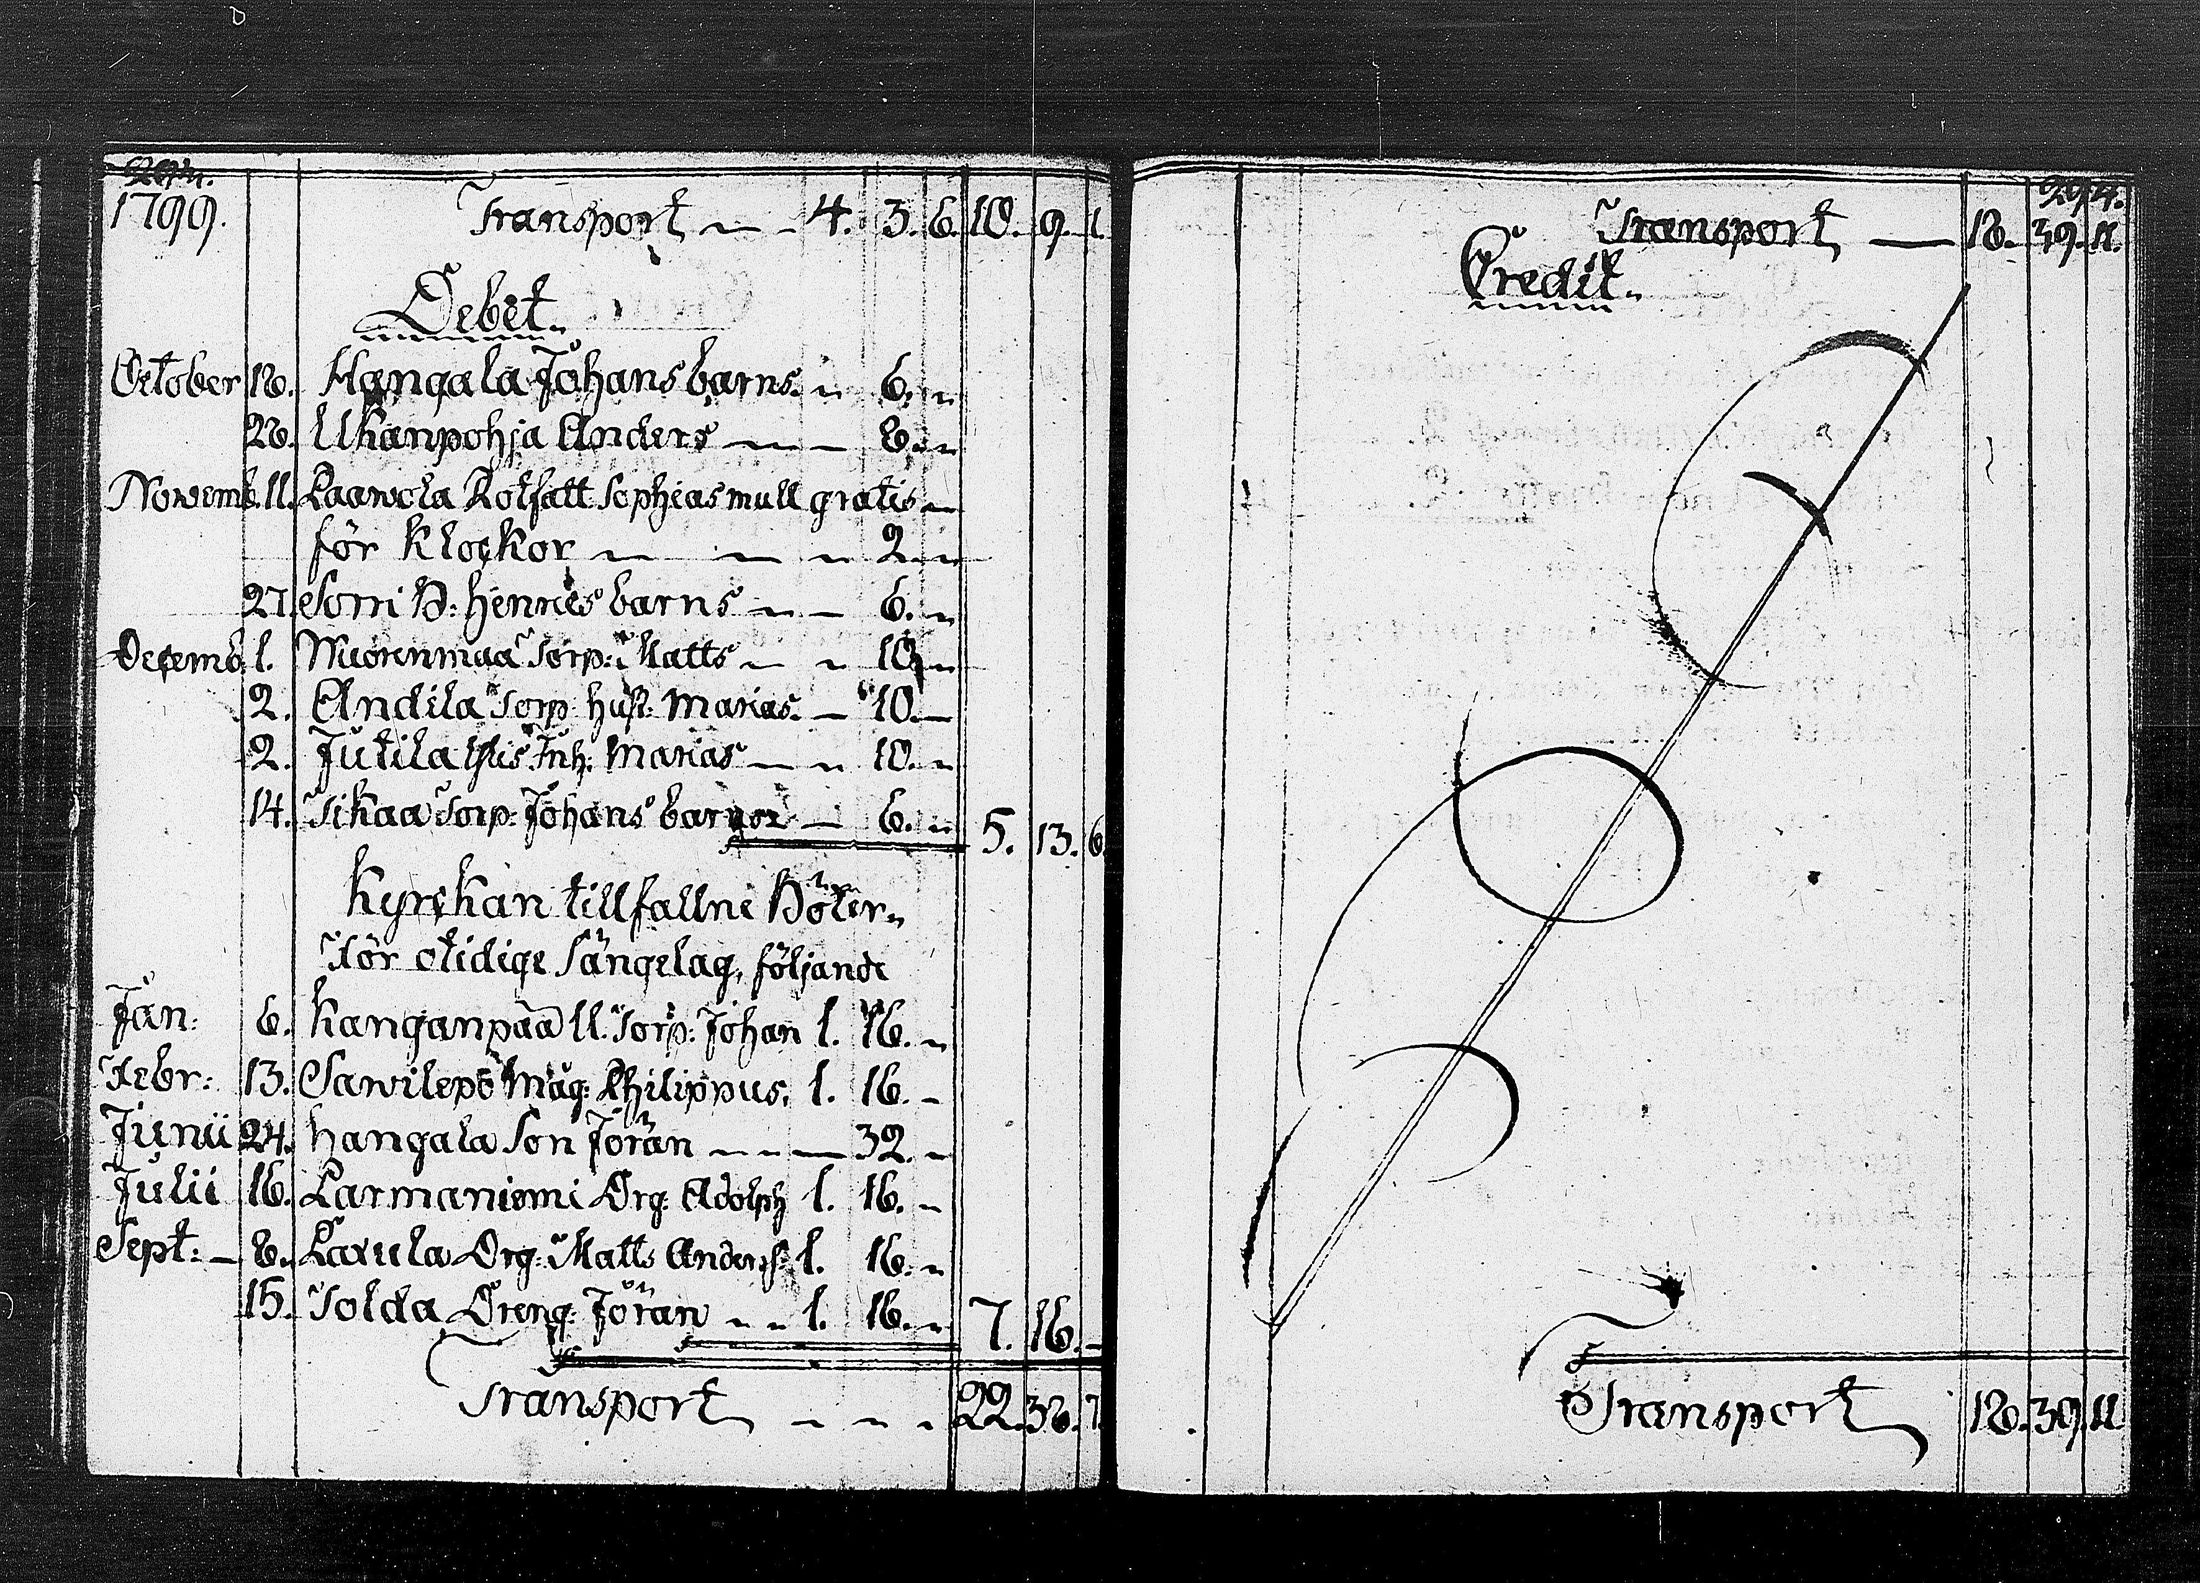 294.
1799.
Transport — — 4. 3. 6. 10. 9. 1.
Debet.
October 18. Hangala Johans barns. — 6. —
28. Ukanpohja Anders — — 8. —
Novemb. 11. Laawola Rotfatt. Sophias mull gratis —
för klockor — — — 2. —
27. Sorri B: henrics barns — — 6. —
Decemb. 1. Wuorenmaa Torp: Matts — — 10. —
2. Andila Torp: hust: Marias. — 10. —
2. Jutila Inh: Marias — — 10. —
14. Tikaa Torp: Johans barnor — 6. — 5. 13. 6.
Kyrckan tillfallne Böter
För otidige Sängelag, följande
Jan: 6. Kanganpää U. Torp: Johan 1. 16. —
Febr: 13. Sawilepo Mäg: Philippus. 1. 16. —
Junii 24. Hangala Son Jöran — — — 32. —
Julii 16. Larmaniemi Drg: Adolph 1. 16. —
Sept: — 8. Laxula Drg: Matts Anders: 1. 16. —
15. Tolda Dreng: Jöran — — 1. 16. — 7. 16. —
Transport — — — 22. 38. 7.
294.
Transport — 18. 39. 11.
Credit.
Transport 18. 39. 11.